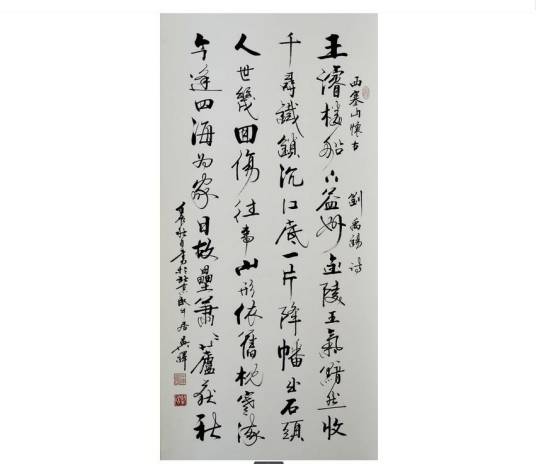 西塞山懷古 劉禹錫詩
王濬樓船下益州金陵王氣黯然收
千尋鐵鎖沉江底一片降幡出石頭
人世幾回傷往事山形依舊枕寒流
今逢四海為家日故壘蕭〻蘆荻秋
秋月書於北京